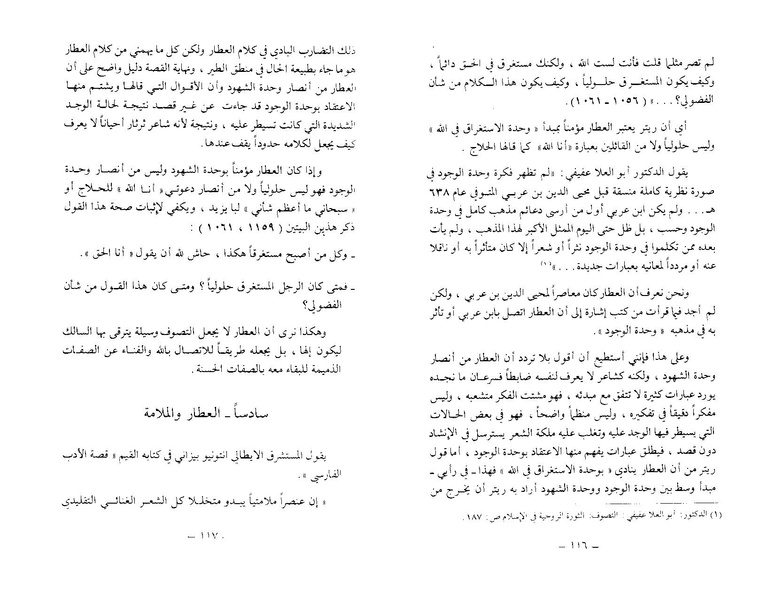 لم تصر مثلما قلت فأنت لست الله ، ولكنك مستغرق في الحق دائماً ،
وكيف يكون المستغرق حلولياً ، وكيف يكون هذا الكلام من شأن
الفضولي؟ . . .» ( ١٠٥٦ – ١٠٦١ ) .
أي أن ريتر يعتبر العطار مؤمناً بمبدأ « وحدة الاستغراق في الله »
وليس حلولياً ولا من القائلين بعبارة «أنا الله» كما قالها الحلاج .
يقول الدكتور أبو العلا عفيفي : «لم تظهر فكرة وحدة الوجود في
صورة نظرية كاملة منسقة قبل محيى الدين بن عربي المتوفى عام ٦٣٨
هـ . . . ولم يكن ابن عربي أول من أرسى دعائم مذهب كامل في وحدة
الوجود وحسب ، بل ظل حتى اليوم الممثل الأكبر لهذا المذهب ، ولم يأت
بعده ممن تكلموا في وحدة الوجود نثراً أو شعراً إلا كان متأثراً به أو ناقلا
عنه أو مردداً لمعانيه بعبارات جديدة . . .»(١)
ونحن نعرف أن العطار كان معاصراً لمحيى الدين بن عربي ، ولكن
لم أجد فيما قرأت من كتب إشارة إلى أن العطار اتصل بابن عربي أو تأثر
به في مذهبه « وحدة الوجود » .
وعلى هذا فإنني أستطيع أن أقول بلا تردد أن العطار من أنصار
وحدة الشهود ، ولكنه كشاعر لا يعرف لنفسه ضابطاً فسرعان ما نجده
يورد عبارات كثيرة لا تتفق مع مبدئه ، فهو مشتت الفكر متشعبه ، وليس
مفكراً دقيقاً في تفكيره ، وليس منظماً واضحاً ، فهو في بعض الحالات
التي يسيطر فيها الوجد عليه وتغلب عليه ملكة الشعر يسترسل في الإنشاد
دون قصد ، فيطلق عبارات يفهم منها الاعتقاد بوحدة الوجود ، أما قول
ريتر من أن العطار ينادي «بوحدة الاستغراق في الله» فهذا ـ في رأيي ـ
مبدأ وسط بين وحدة الوجود ووحدة الشهود أراد به ريتر أن يخرج من
(١) الدكتور : أبو العلا عفيفي : التصوف: الثورة الروحية في الإسلام ص : ١٨٧ .
– ١١٦ –
ذلك التضارب البادي في كلام العطار ولكن كل ما يهمني من كلام العطار
هو ما جاء بطبيعة الحال في منطق الطير ، ونهاية القصة دليل واضح على أن
العطار من أنصار وحدة الشهود وأن الأقوال التي قالها ويشتم منها
الاعتقاد بوحدة الوجود قد جاءت عن غير قصد نتيجة لحالة الوجد
الشديدة التي كانت تسيطر عليه ، ونتيجة لأنه شاعر ثرثار أحياناً لا يعرف
كيف يجعل لكلامه حدوداً يقف عندها .
وإذا كان العطار مؤمناً بوحدة الشهود وليس من أنصار وحدة
الوجود فهو ليس حلولياً ولا من أنصار دعوتي « أنا الله » للحلاج أو
« سبحاني ما أعظم شأني » لبا يزيد ، ويكفي لإثبات صحة هذا القول
ذكر هذين البيتين ( ١١٥٩ ، ١٠٦١ ) :
ـ وكل من أصبح مستغرقاً هكذا ، حاش لله أن يقول « أنا الحق » .
ـ فمتى كان الرجل المستغرق حلولياً ؟ ومتى كان هذا القول من شأن
الفضولي؟
وهكذا نرى أن العطار لا يجعل التصوف وسيلة يترقى بها السالك
ليكون إلها ، بل يجعله طريقاً للاتصال بالله والفناء عن الصفات
الذميمة للبقاء معه بالصفات الحسنة .
سادساً ـ العطار والملامة
يقول المستشرق الايطالي انتونيو بيزاني في كتابه القيم « قصة الأدب
الفارسي » .
« إن عنصراً ملامتياً يبدو متخللا كل الشعر الغنائي التقليدي
– ١١٧ –